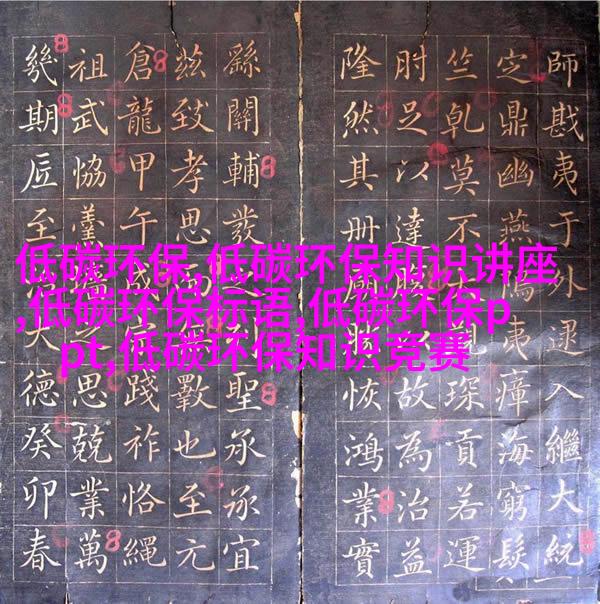 師戡夷于外逮入繼大統
定鼎幽燕夷瘴海窮髮
竺乹莫不琛貢若運
肘足以達故為治益
隆然其冊恢鴻業實
繇關輔發之聖承宜
茲致孝思斁也至元
倉龍甲午成踐祚恪繩
祖武恊之思兢業萬
幾期匠至大德癸卯春
低碳环保,低碳环保知识讲座
,低碳环保标语,低碳环保p
pt,低碳环保知识竞赛